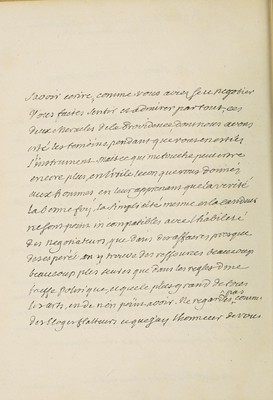 savoir ecrire, comme vous avez sceu negotier
vous faites sentir et admirer par tout, ces
deux Miracles de la Providence dont nous avons
esté les temoins pendant que vous en estiez
l'instrument. Mais ce qui me touche peut estre
encore plus, c'est la leçon que vous donnez
aux hommes en leur apprenant que la verité
la bonne foy, la simplicité meme et la candeur
ne sont point incompatibles avec l'habileté
des negotiateurs, que dans des affaires presque
desesperées on y trouve des ressources beaucoup
beaucoup plus seures que dans les regles d'une
fausse politique, et que le plus grand de tous
les arts, est de n'en point avoir. Ne regardez pas, comme
des Eloges flatteurs ce que j'ay l'honneur de vous